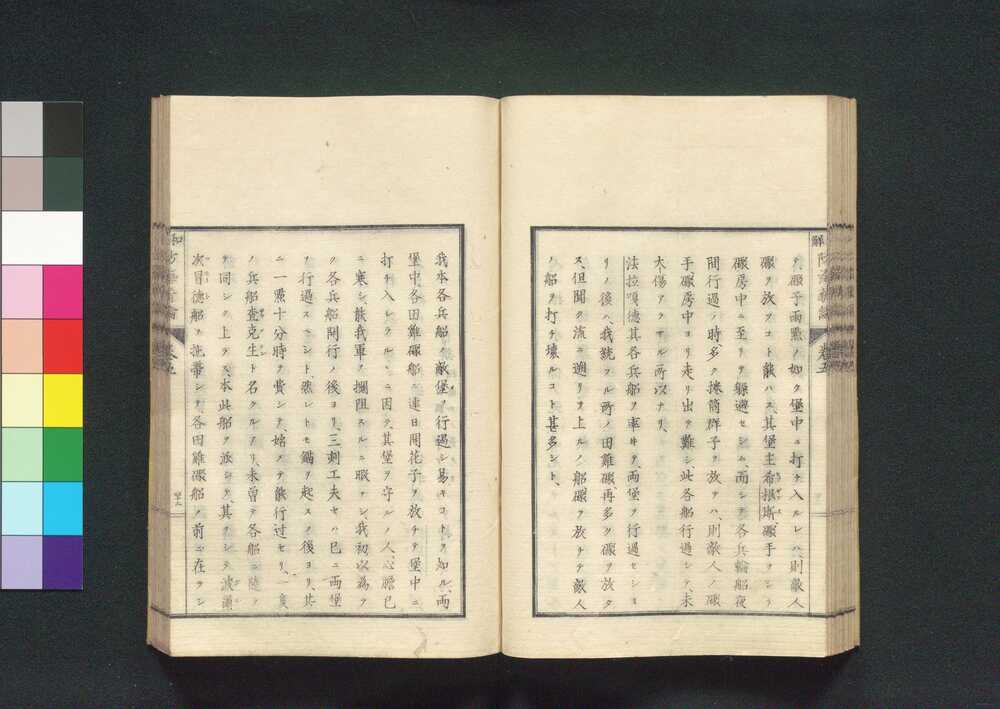 ヲ、礟子雨點ノ如ク堡中ニ打チ入ルレハ、則敵人
礟ヲ放ツコト能ハス、其堡主希根斯礟手ヲシテ
礟房中ニ至リテ躱避セシム、而シテ各兵輪船夜
間行過ノ時多ク揀筒群子ヲ放テハ、則敵人ノ礟
手礟房中ヨリ走リ出テ難シ此各船行過シテ、未
大傷アラサル所以ナリ、
法拉嘎德其各兵船ヲ率ヰテ、両堡ヲ行過セシヨ
リノ後ハ、我統フル所ノ田雞礟再多ク礟ヲ放タ
ス、但聞ク流ニ遡リテ上ルノ船礟ヲ放チテ敵人
ノ船ヲ打チ壊ルコト甚多シト、
我本各兵船ノ敵堡ノ行過シ易キコトヲ知ル、両
堡中各田雞礟船ニ連日開花子ヲ放チテ堡中ニ
打チ入レラルルニ因テ、其堡ヲ守ルノ人、心膽已
ニ寒シ、能我軍ヲ攔阻スルニ暇ナシ、我初以為ラ
ク各兵船開行ノ後ヨリ、三刻工夫セハ已ニ両堡
ヲ行過スヘシト、然レトモ錨ヲ起スノ後ヨリ、其
ニ一點十分時ヲ費シテ、始メテ能行过セリ、一度
ノ兵船查克生ト名クルアリ、未曽テ各船ニ随テ
ヲ同シク上ラス、本此船ヲ派シテ、其ヲシテ波爾
次冒德船ヲ拖帯シテ、各田雞礟船ノ前ニ在ラシ